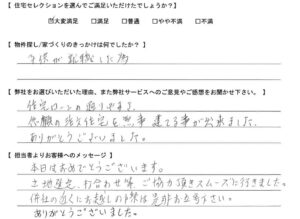 【 住宅セレクションを選んでご満足いただけたでしょうか？】
☑大変満足 □満足 □普通 □やや不満 □不満
【 物件探し/家づくりのきっかけは何でしたか？ 】
子供が就職した為
【 弊社をお選びいただいた理由、また弊社サービスへのご意見やご感想をお聞かせ下さい。 】
住宅ローンの通りやすさ、
念願の注文住宅を無事建てる事が出来ました。
ありがとうございました。
【 担当者よりお客様へのメッセージ 】
本日はおめでとうございます。
土地選定、打合わせ等、ご協力頂きスムーズに行きました。
弊社の近くにお越しの際は是非お立寄下さい。
ありがとうございました。